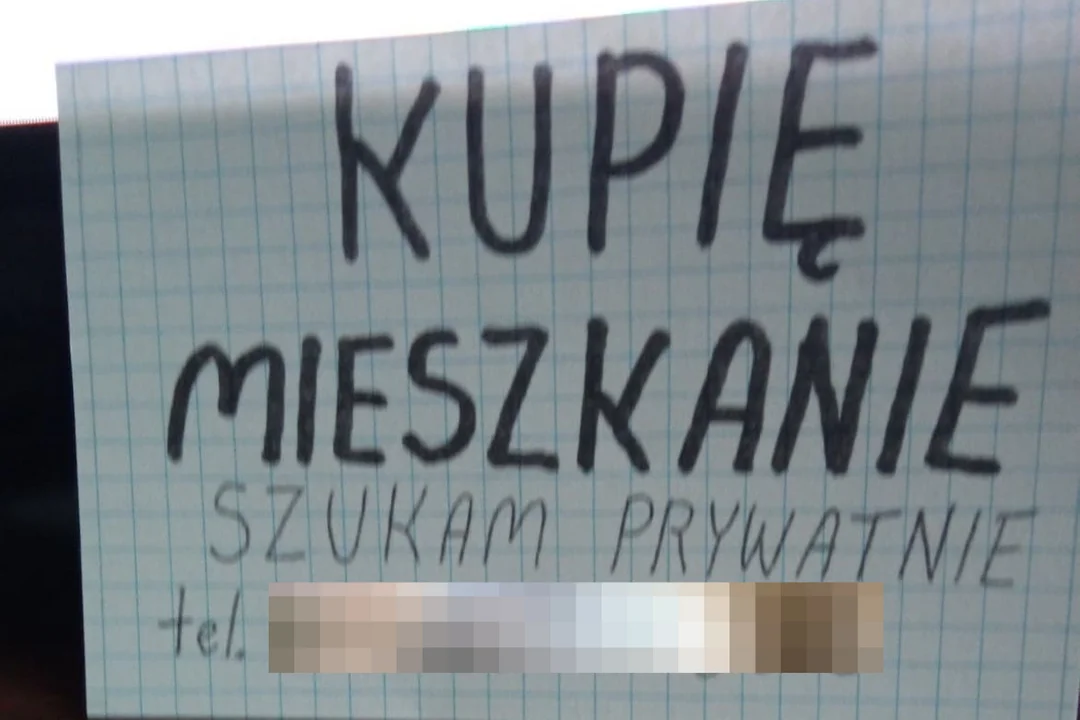 KUPIĘ
MIESZKANIE
SZUKAM PRYWATNIE
tel.